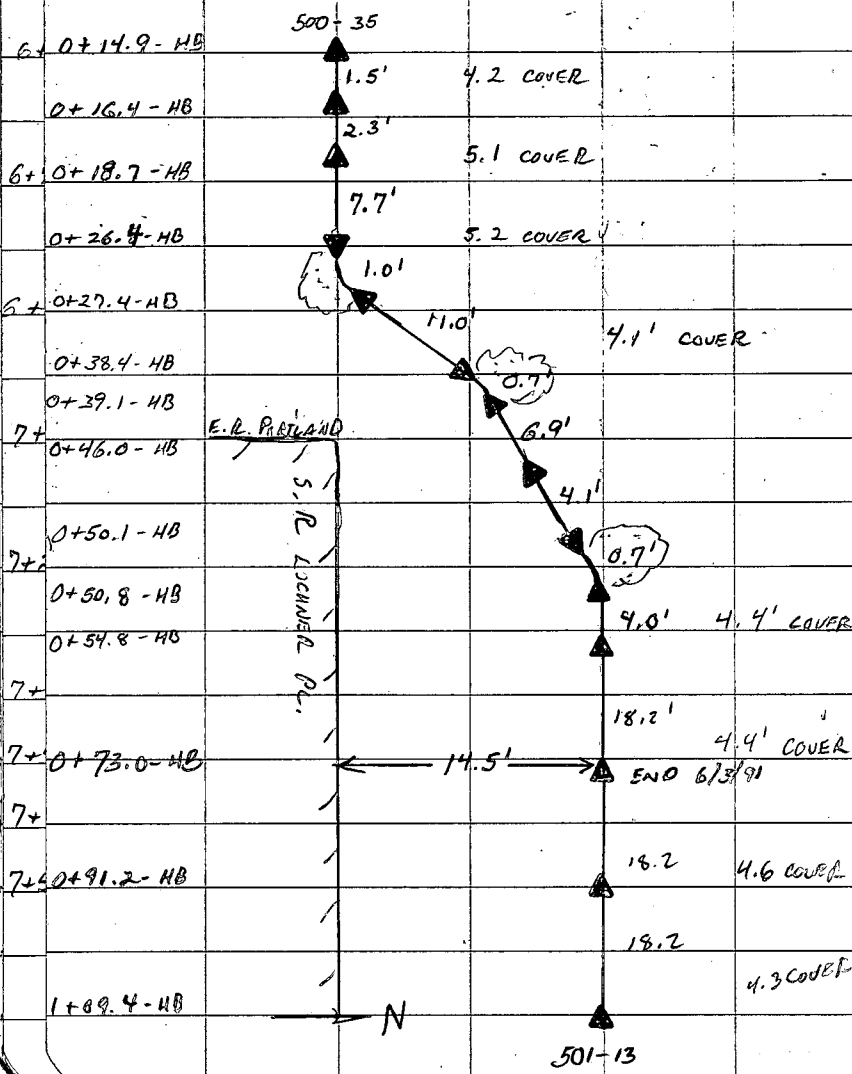 500-35
6+ 0+14.9-HB
1.5' 4.2 COVER
0+16.4-HB
2.3'
6+ 0+18.7-HB 5.1 COVER
7.7'
0+26.4-HB 5.2 COVER
1.0'
6+ 0+27.4-HB
11.0' 4.1' COVER
0+38.4-HB 0.7'
0+39.1-HB
7+ E.R. PARTLAND 6.9'
0+46.0-HB
S.R LOCHNER PL.
4.1'
0+50.1-HB
7+ 0.7'
0+50.8-HB
4.0' 4.4' COVER
0+54.8-HB
7+
18.2'
4.4' COVER
7+ 0+73.0-HB 14.5' END 6/3/91
7+
18.2 4.6 COVER
7+ 0+91.2-HB
18.2
4.3 COVER
1+09.4-HB N
501-13